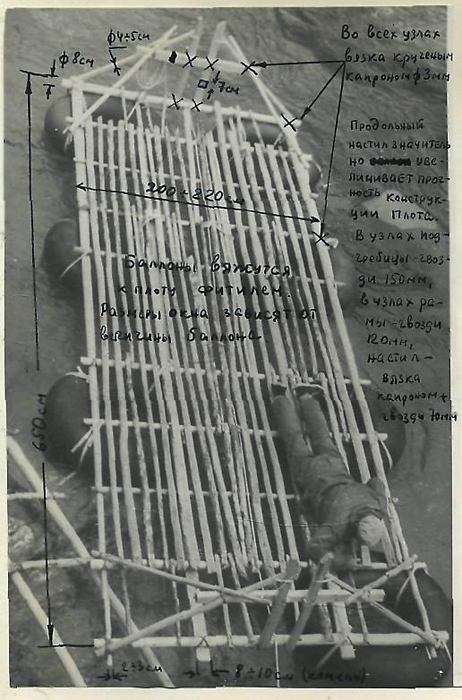 Во всех узлах
вязка крученым
капроном ф3мм
ф4÷5см
ф8см
7см
Продольный
настил значитель
но уве-
личивает проч-
ность конструк-
ции плота.
В узлах под-
гребицы-гвоз-
ди 150мм,
в узлах ра-
мы-гвозди
120мм,
настил-
вязка
капроном +
гвозди 70мм
200÷220см
Баллоны вяжутся
к плоту фитилем.
Размеры окна зависят от
величины баллона.
650см
2÷3см
8÷10см (комель)